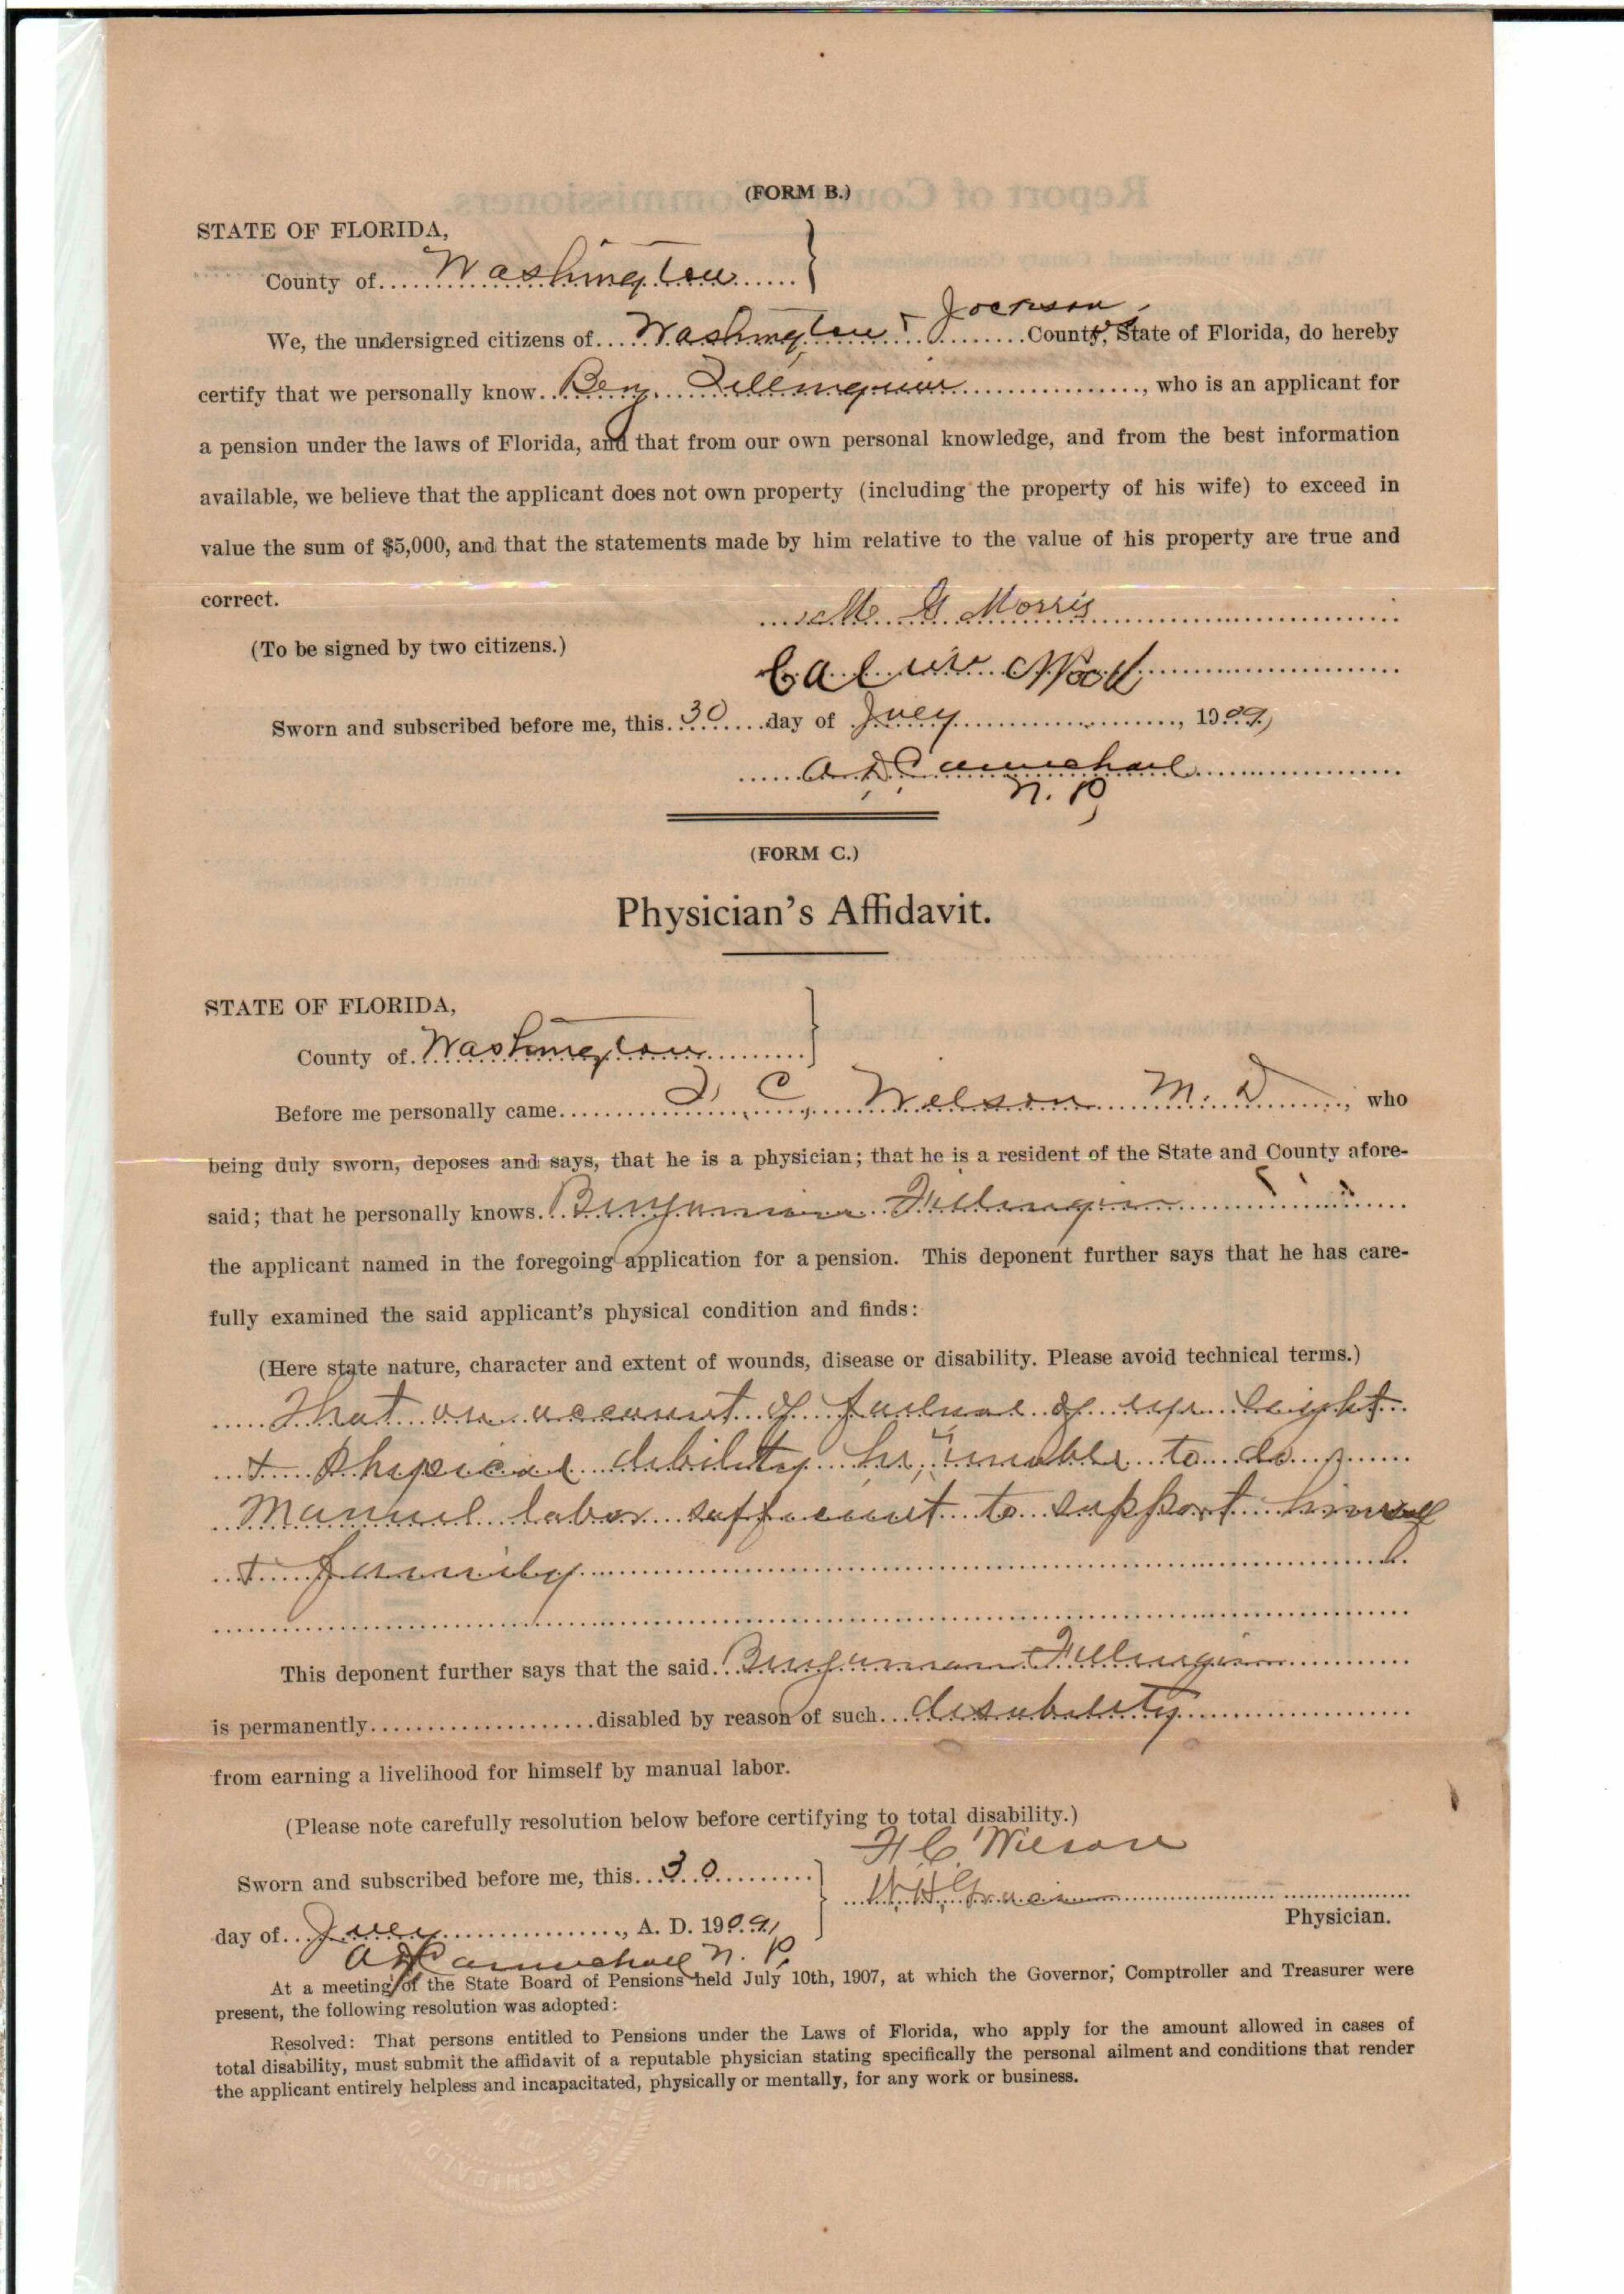 (FORM B.)
STATE OF FLORIDA,
County of Washington
We, the undersigned citizens of Washington & Jackson County, State of Florida, do hereby
certify that we personally know Benj. Fillingim, who is an applicant for
a pension under the laws of Florida, and that from our own personal knowledge, and from the best information
available, we believe that the applicant does not own property (including the property of his wife) to exceed in
value the sum of $5,000, and that the statements made by him relative to the value of his property are true and
correct.
G Morris
(To be signed by two citizens.)
Calvin
Sworn and subscribed before me, this 30 day of July, 1909
A. D. Carmichael
N. P.
(FORM C.)
Physician's Affidavit.
STATE OF FLORIDA,
County of Washington
Before me personally came C. Wilson M. D., who
being duly sworn, deposes and says, that he is a physician; that he is a resident of the State and County afore-
said; that he personally knows Benjamin Fillingim
the applicant named in the foregoing application for a pension. This deponent further says that he has care-
fully examined the said applicant's physical condition and finds:
(Here state nature, character and extent of wounds, disease or disability. Please avoid technical terms.)
That on account of failure of eye sight
& Physical debility he is unable to do
Manuel labor sufficient to support himself
& family
This deponent further says that the said Benjaman Fillingim
is permanently disabled by reason of such disability
from earning a livelihood for himself by manual labor.
(Please note carefully resolution below before certifying to total disability.)
H. C. Wilson
Sworn and subscribed before me, this 30
day of July, A. D. 1909
Physician.
A D Carmichael N. P.
At a meeting of the State Board of Pensions held July 10th, 1907, at which the Governor, Comptroller and Treasurer were
present, the following resolution was adopted:
Resolved: That persons entitled to Pensions under the Laws of Florida, who apply for the amount allowed in cases of
total disability, must submit the affidavit of a reputable physician stating specifically the personal ailment and conditions that render
the applicant entirely helpless and incapacitated, physically or mentally, for any work or business.